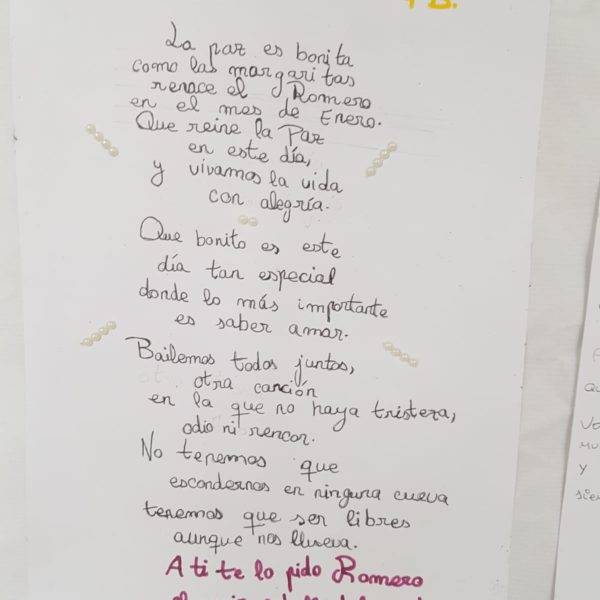 La paz es bonita
como las margaritas
renace el Romero
en el mes de Enero.
Que reine la Paz
en este día,
y vivamos la vida
con alegría.
Que bonito es este
día tan especial
donde lo más importante
es saber amar.
Bailemos todos juntos,
otra canción
en la que no haya tristeza,
odio ni rencor.
No tenemos que
escondernos en ninguna cueva
tenemos que ser libres
aunque nos llueva.
A ti te lo pido Romero